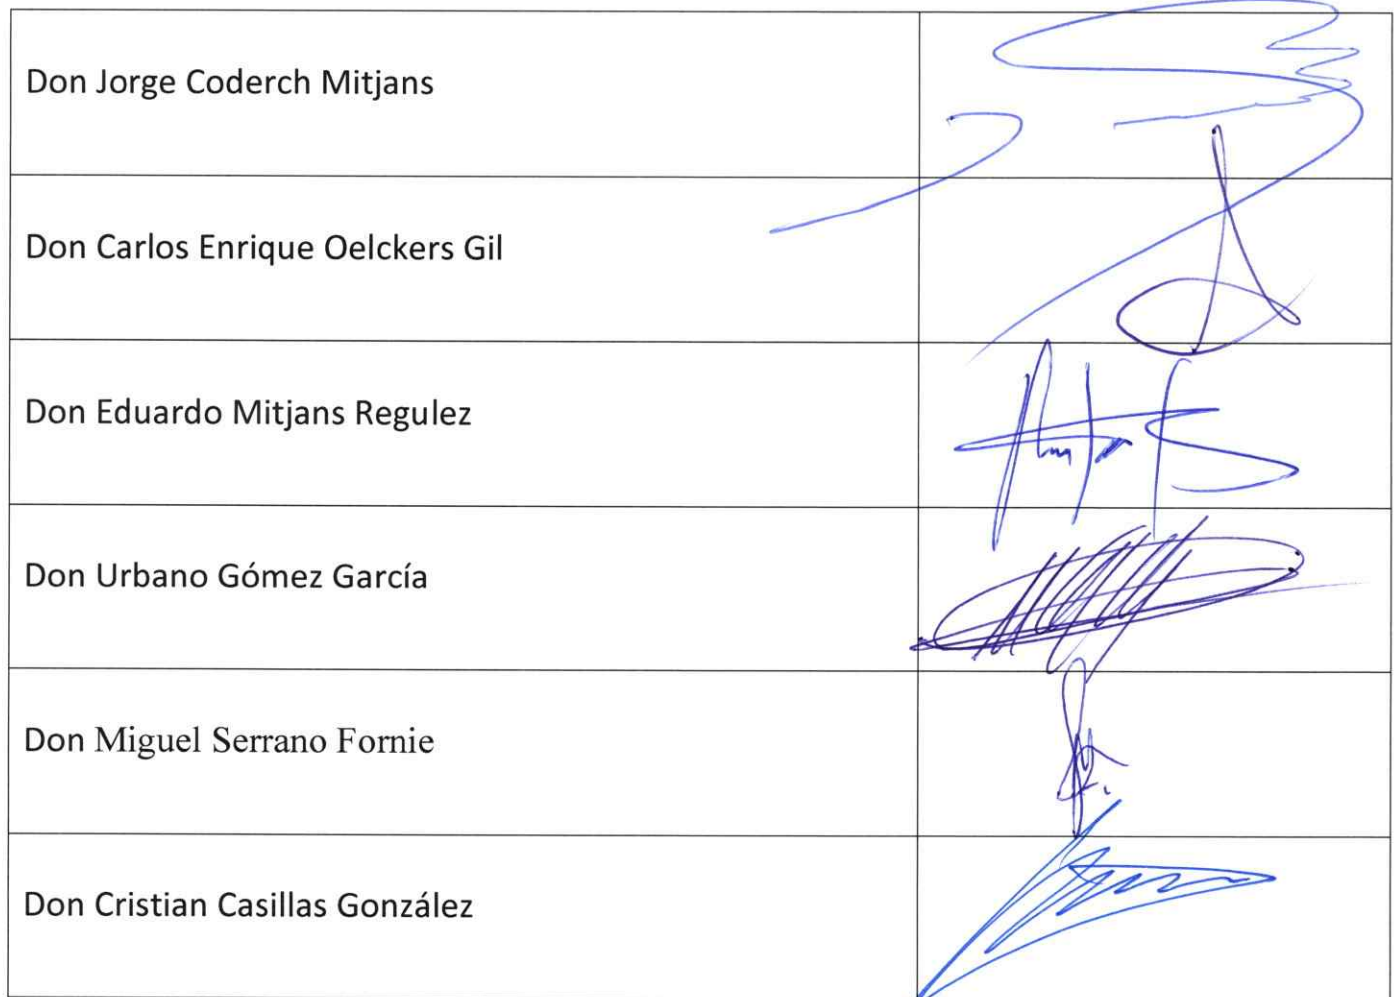 Don Jorge Coderch Mitjans
Don Carlos Enrique Oelckers Gil
Don Eduardo Mitjans Regulez
Don Urbano Gómez García
Don Miguel Serrano Fornie
Don Cristian Casillas González